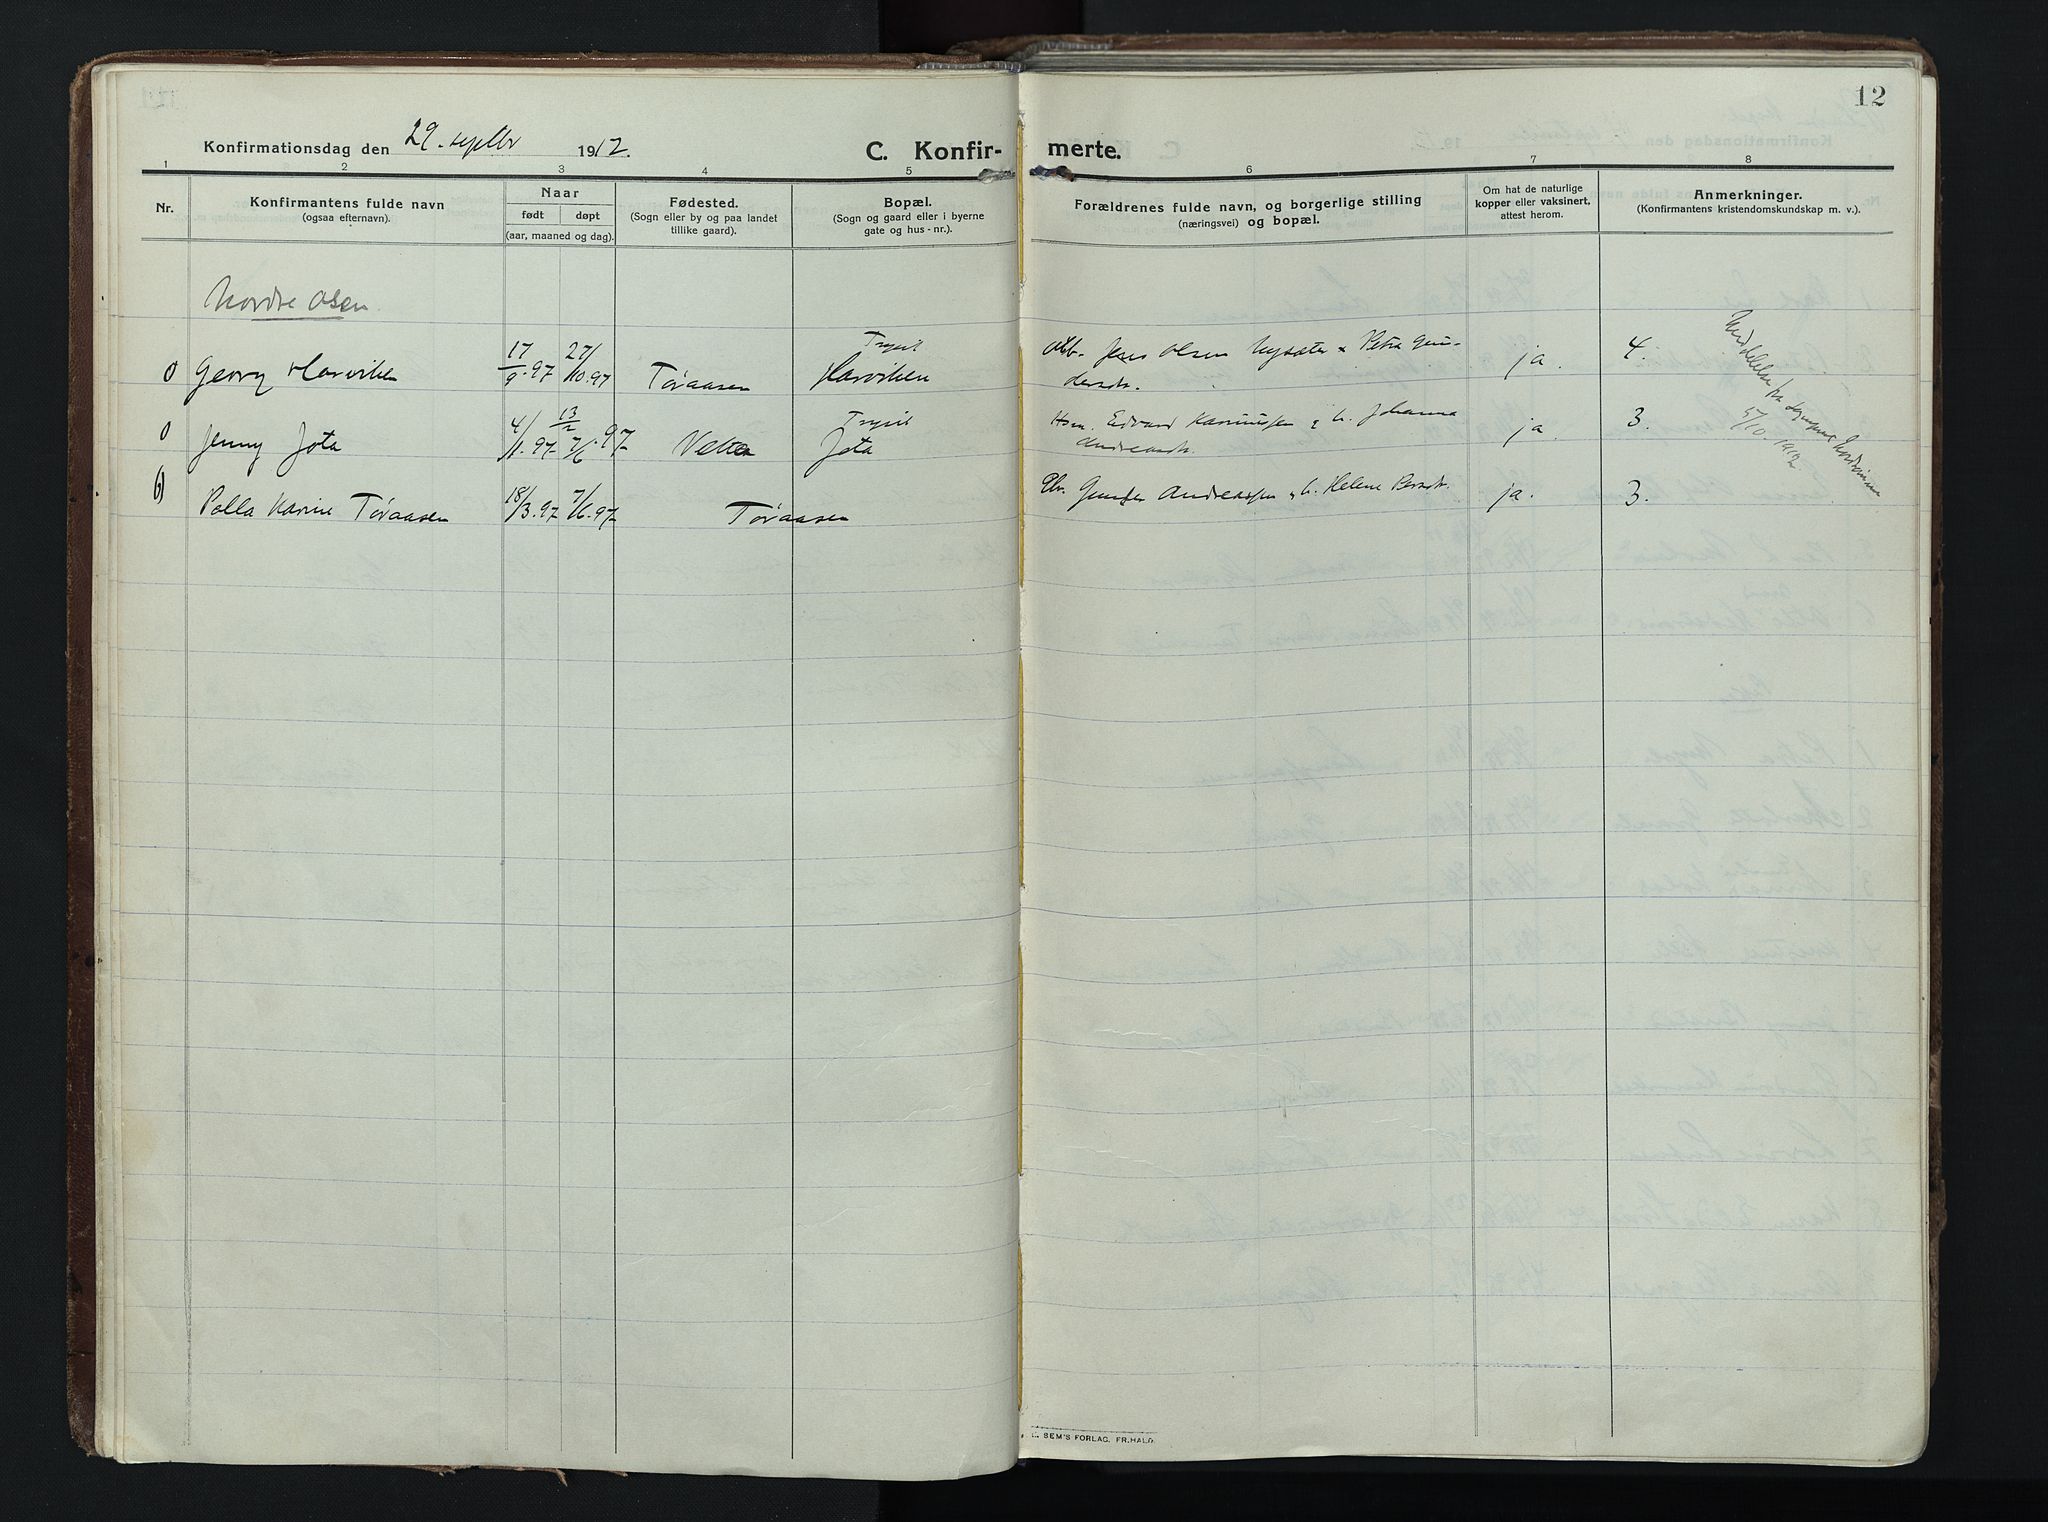 12
Konfirmationsdag den 29. septbr 1912.
C. Konfirmerte.
1 2 3 4 5 6 7 8
Nr.
Konfirmantens fulde navn
(ogsaa efternavn).
Naar
født døpt
(aar, maaned og dag).
Fødested.
(Sogn eller by og paa landet
tillike gaard).
Bopæl.
(Sogn og gaard eller i byerne
gate og hus-nr.).
Forældrenes fulde navn, og borgerlige stilling
(næringsvei) og bopæl.
Om hat de naturlige
kopper eller vaksinert,
attest herom.
Anmerkninger.
(Konfirmantens kristendomskundskap m. v.).
Nordre Osen
0 Georg Harviken 17/9.97 27/10.97 Tøraasen Trysil Harviken Jens Olsen Nysæter & Petra Gundersdtr. ja. 4.
0 Jenny Jota 4/1.97 13/2 7/6.97 Trysil Jota Edvard & h. Johanna Andreasdtr. ja. 3.
Palla Karine Tøraasen 18/3.97 7/6.97 Tøraasen Andreassen & h. Helene Persdtr. ja. 3.
Meddelelse fra
5/10.1912.
SEM'S FORLAG, FR.HALD